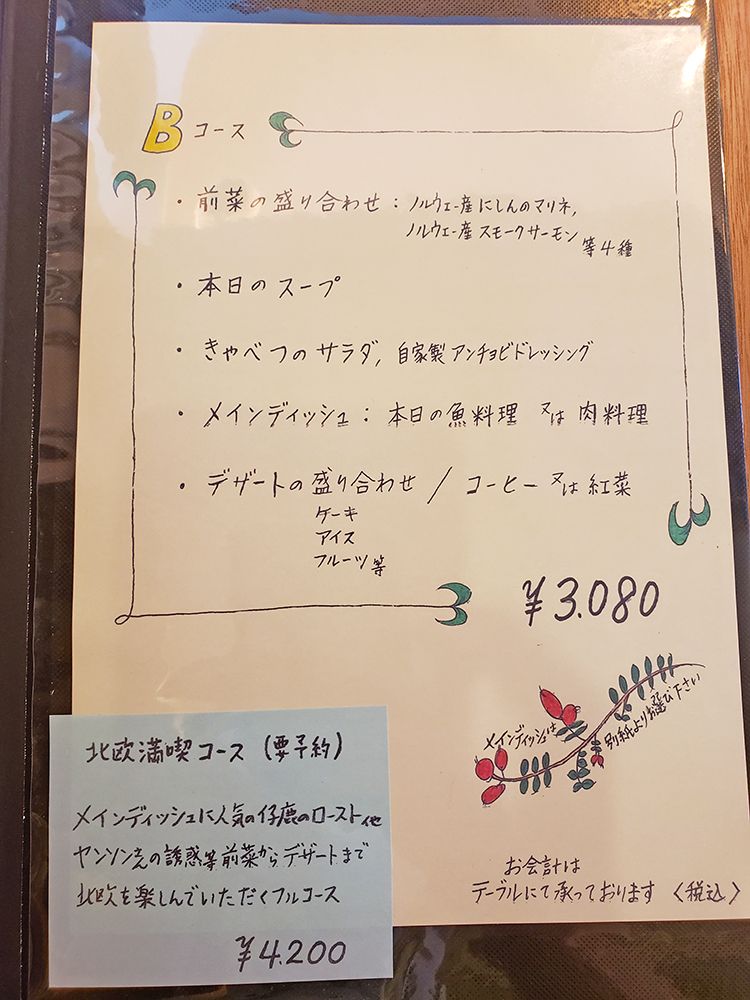 B コース
・前菜の盛り合わせ：ノルウェー産にしんのマリネ,
ノルウェー産スモークサーモン
等4種
・本日のスープ
・きゃべつのサラダ, 自家製アンチョビドレッシング
・メインディッシュ：本日の魚料理 又は 肉料理
・デザートの盛り合わせ / コーヒー 又は 紅茶
ケーキ
アイス
フルーツ等
¥3.080
メインディッシュは
別紙よりお選び下さい
北欧満喫コース（要予約）
メインディッシュに人気の仔鹿のロースト他
ヤンソンさんの誘惑等前菜からデザートまで
北欧を楽しんでいただくフルコース
¥4.200
お会計は
テーブルにて承っております 〈税込〉